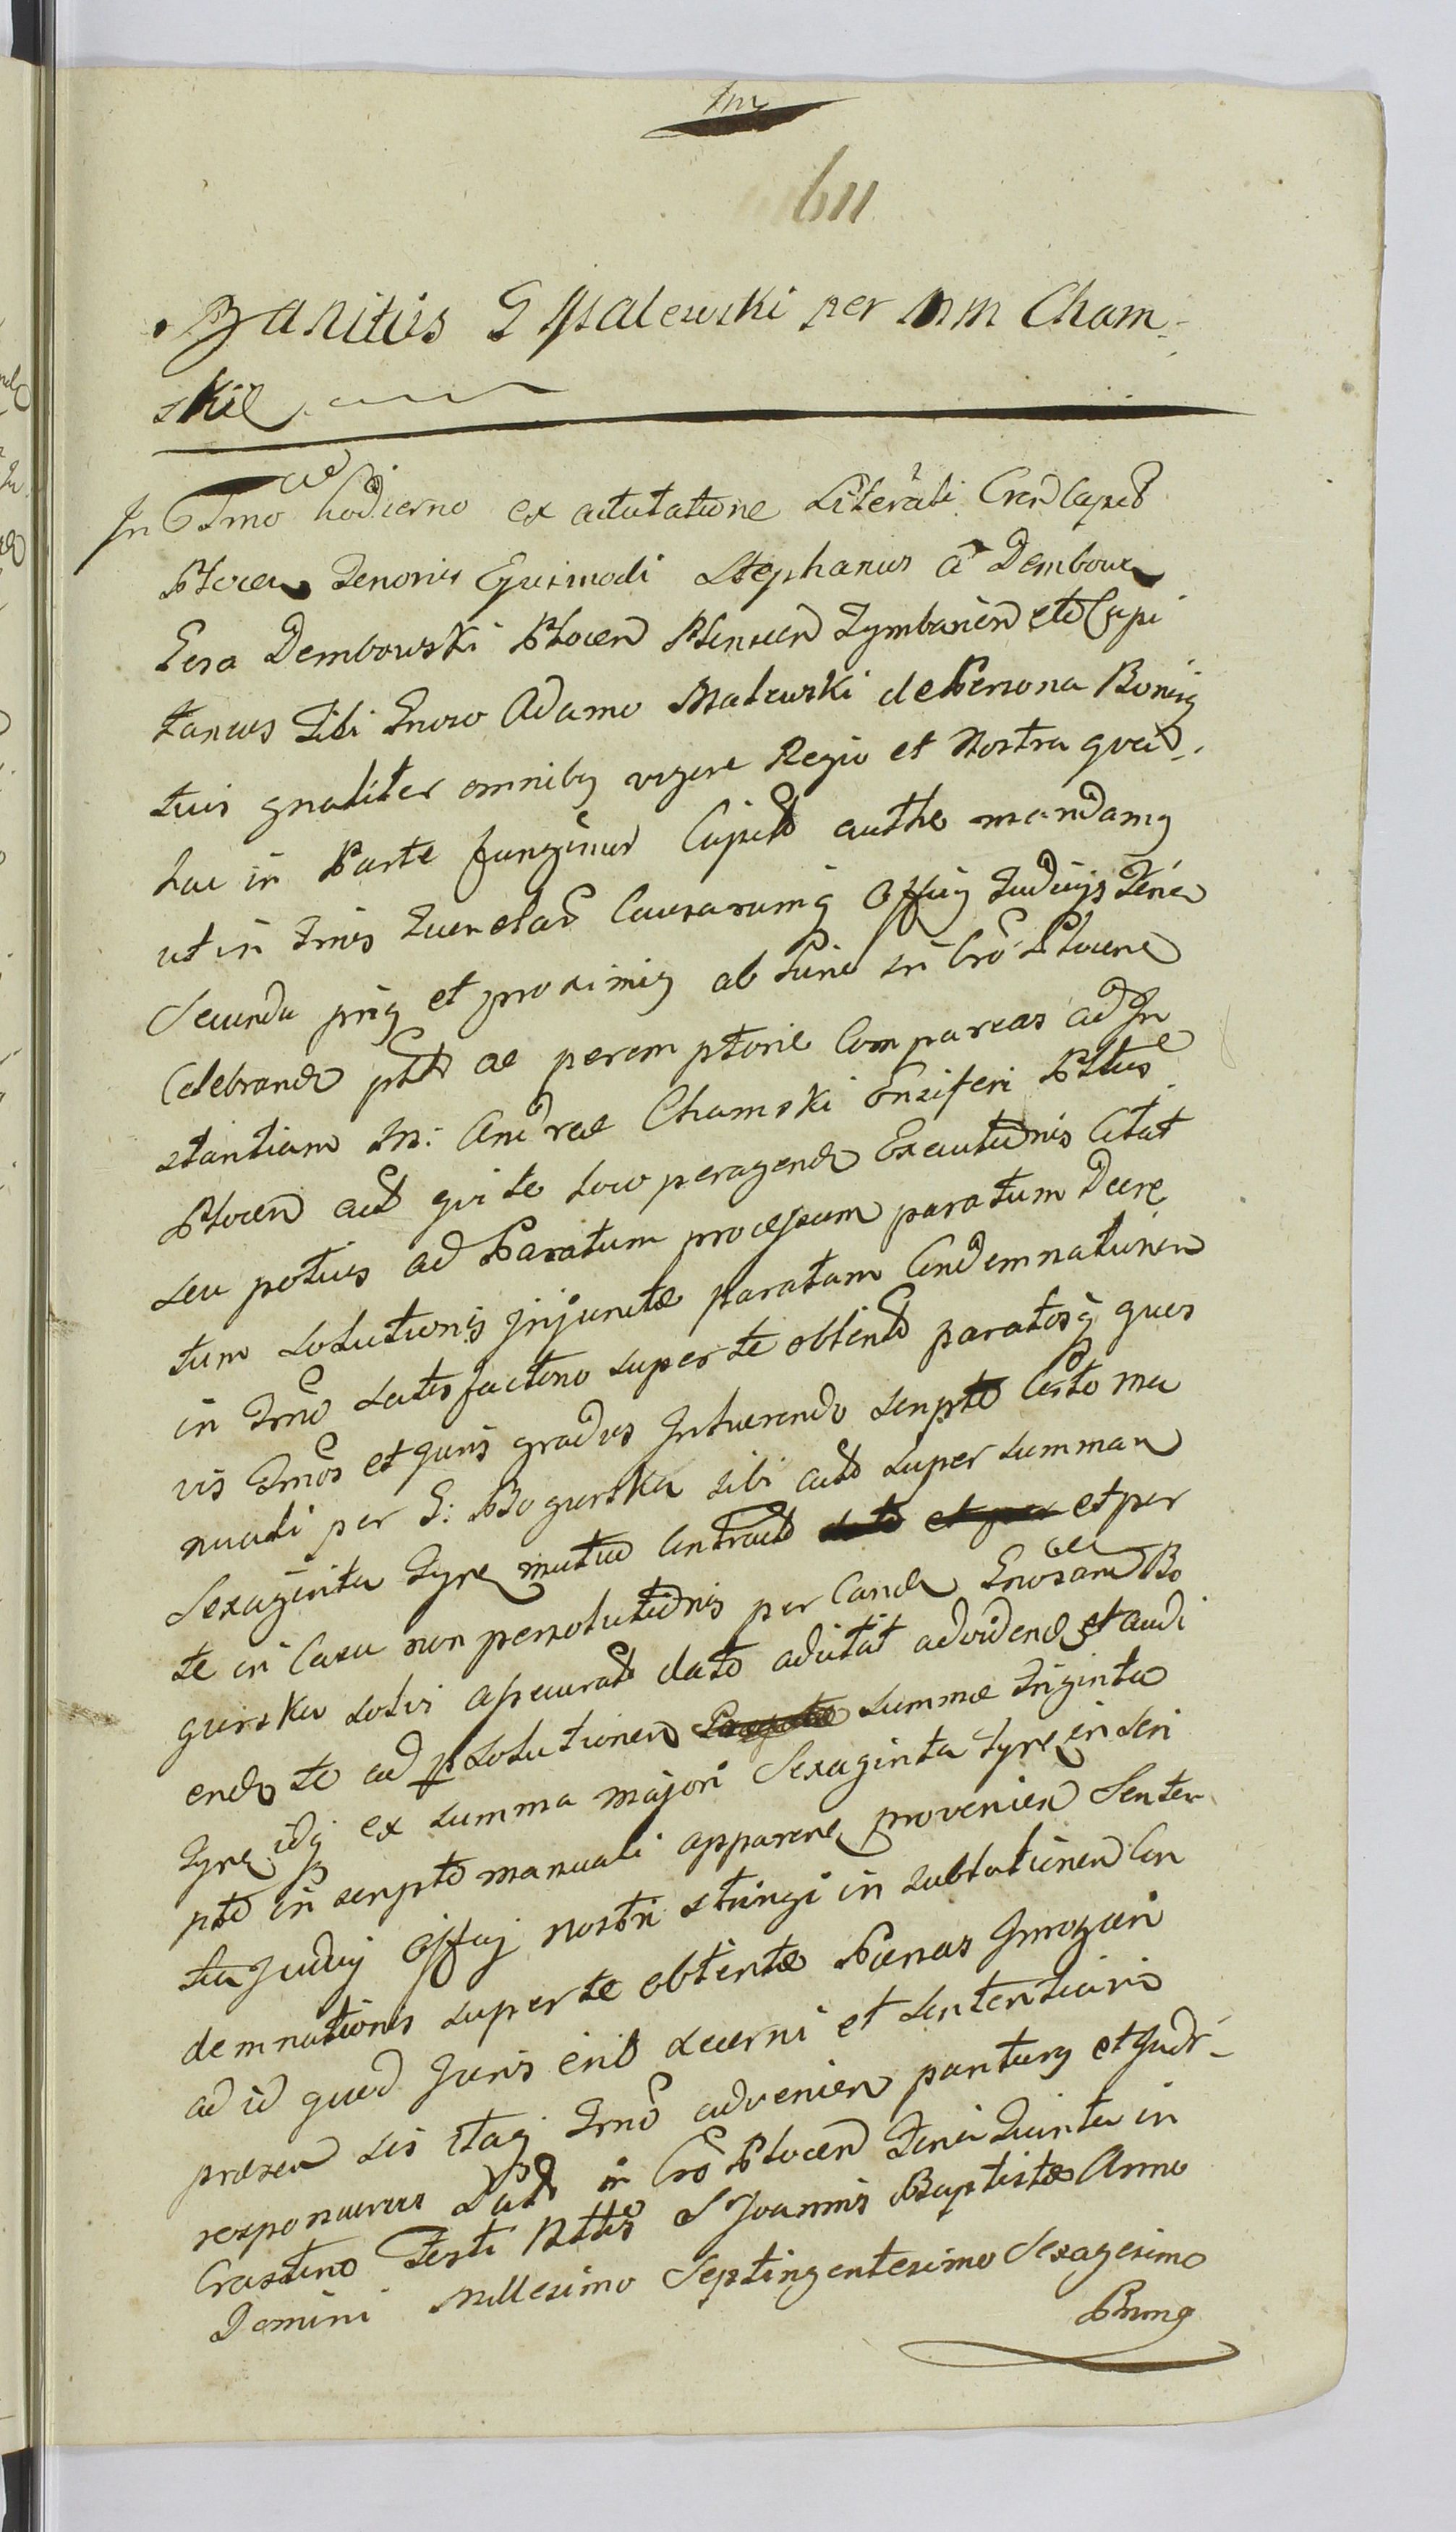 611
Banitus G Malewski per Mm Cham-
skie
In Termo hodierno ex citatatione Literali Cren Captb
Plocen Tenoris Ejusmodi Stephanus à Dembowa
Gora Dembowski Plocen Plonscen Zymbarien etc Capi
taneus Tibi Gnoso Adamo Malewski de Persona Bonisq
tuis gnaliter omnibq vigore Regia et Nostra qua
hac in Parte fungimur Captb autthe mandamq
ut in Tmis Querelar Causarumq Offij Judicijs Feria
Secunda priq et proximiq ab hinc in Cro Plocen
Celebrand ptr ac peremptorie Compareas ad In
stantiam M: Andreae Chamski Ensiferi Pltus
Plocen act qui te loco peragend Executionis Citat
seu potius ad Paratum processum paratum Decre
tum Solutionis injunctae paratam Condemnationem
in Tmo satisfactono super te obtent paratosq quos
vis Tmos et Juris gradus Inhaerendo scripto Cisto ma
nuali per G: Bogurska sibi act super summam
Sexaginta Tynf mutuo Contract et per
te in Casu non persolutionis per Cand Gnosam Bo
gurska solvi assecurat dato adcitat ad vidend et audi
end te ad psolutionem summae Triginta
Tynf idq ex summa majori Sexaginta Tynf in scri
pto in scripto manuali apparen provenien Senten
tia Judicij Offij nostri stringi in sublationem Con
demnationis super te obtentae Paenas Irrogari
ad id quod Juris erit decerni et sententiari
praesen sis itaq Tmo advenien pariturq et Judr
responsurus Dat in Cro Plocen Feria Quinta in
Crastino Festi Nttis S Joannis Baptistae Anno
Domini Millesimo Septingentesimo Sexagesimo
Primo